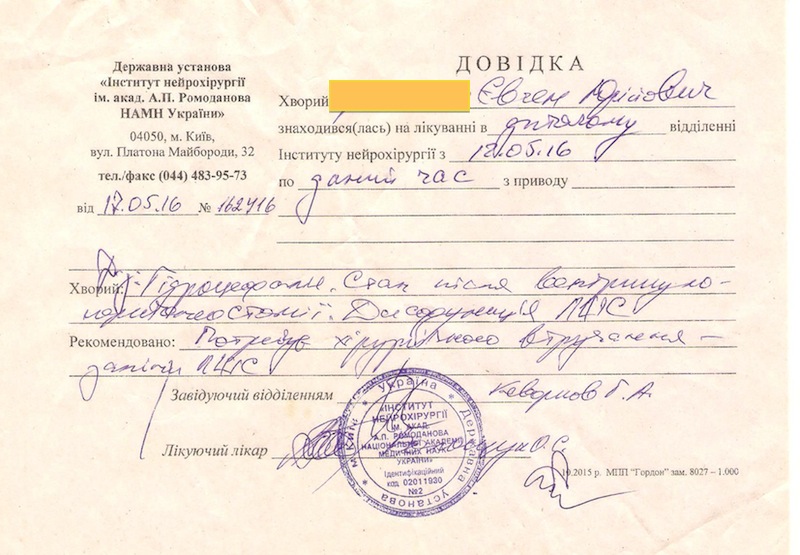 Державна установа
«Інститут нейрохірургії
ім. акад. А.П. Ромоданова
НАМН України»
04050, м. Київ,
вул. Платона Майбороди, 32
тел./факс (044) 483-95-73
від 17.05.16 № 162416
ДОВІДКА
Хворий Євген Юрійович
знаходився(лась) на лікуванні в дитячому відділенні
Інституту нейрохірургії з 12.05.16
по даний час з приводу
Хворий: Гідроцефалія. Стан після вентрикуло-
перитонеостомії. Дисфункція ЛШС
Рекомендовано: Потребує хірургічного втручання –
заміни ЛШС
Завідуючий відділенням
Лікуючий лікар О.С.
* Україна * Державна установа * м. Київ
«ІНСТИТУТ
НЕЙРОХІРУРГІЇ
ІМ. АКАД.
А.П. РОМОДАНОВА
НАЦІОНАЛЬНОЇ АКАДЕМІЇ
МЕДИЧНИХ НАУК
УКРАЇНИ»
Ідентифікаційний
код 02011930
№2
10.2015 р. МПП "Гордон" зам. 8027 – 1.000